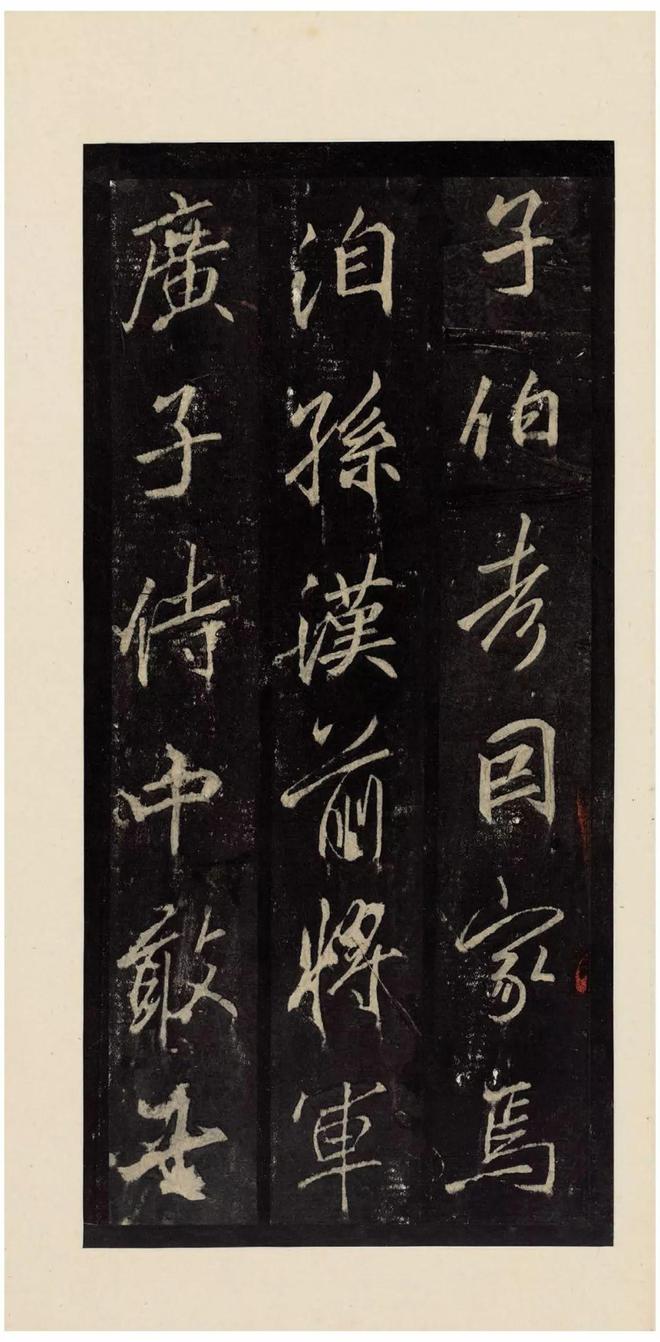 子伯考因家焉
洎孫漢前將軍
廣子侍中敢世